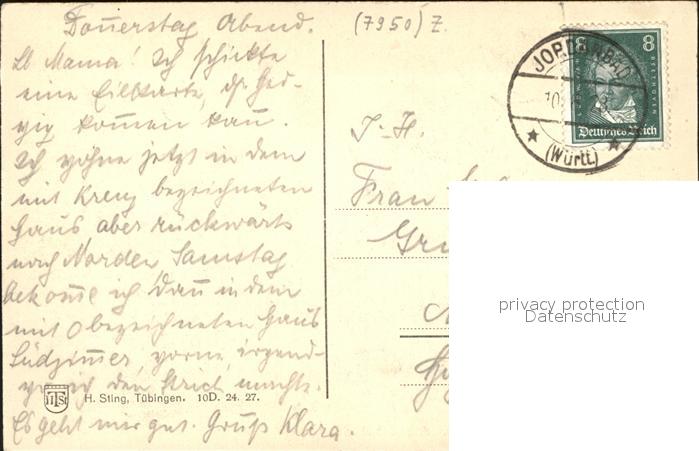 Donnerstag Abend.
(7950) Z.
Lb Mama! Ich schickte
eine Eilkarte, dß Hed-
wig kommen kann.
Ich wohne jetzt in dem
mit Kreuz bezeichneten
Haus aber rückwärts
nach Norden, Samstag
bekomme ich dann in dem
mit o bezeichneten Haus
Südzimmer, vorne, irgend-
wo ich den Strich machte.
Es geht mir gut. Gruß Klara.
H. Sting, Tübingen. 10D. 24. 27.
HST
JORDANBAD
(Württ.)
8
BEETHOVEN
Deutsches Reich
Frau
privacy protection
Datenschutz